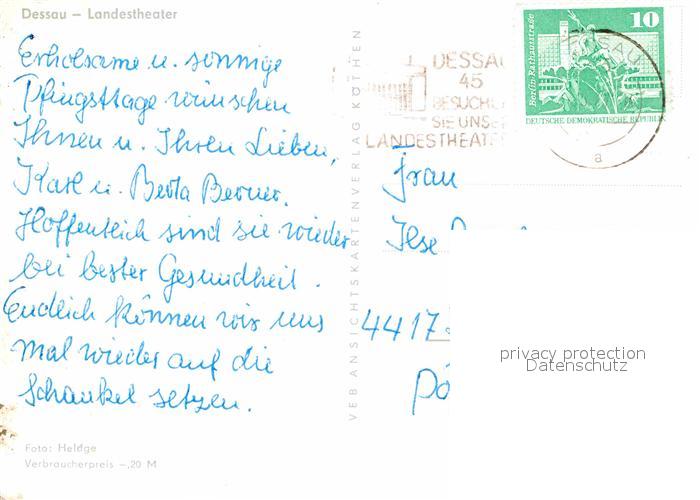 Dessau – Landestheater
Erholsame u. sonnige
Pfingsttage wünschen
Ihnen u. Ihren Lieben,
Karl u. Berta Berner.
Hoffentlich sind sie wieder
bei bester Gesundheit.
Endlich können wir uns
mal wieder auf die
Schaukel setzen.
Foto: Heldge
Verbraucherpreis –,20 M
VEB ANSICHTSKARTENVERLAG KÖTHEN
DESSAU
45
BESUCHEN
SIE UNSER
LANDESTHEATER
Berlin, Rathausstraße
10
DEUTSCHE DEMOKRATISCHE REPUBLIK
DESSAU
a
Frau
Ilse
4417
Dö
privacy protection
Datenschutz